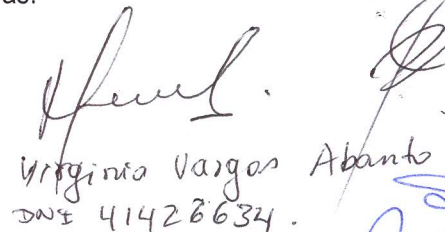 Virginia Vargas Abanto
DNI 41426634.